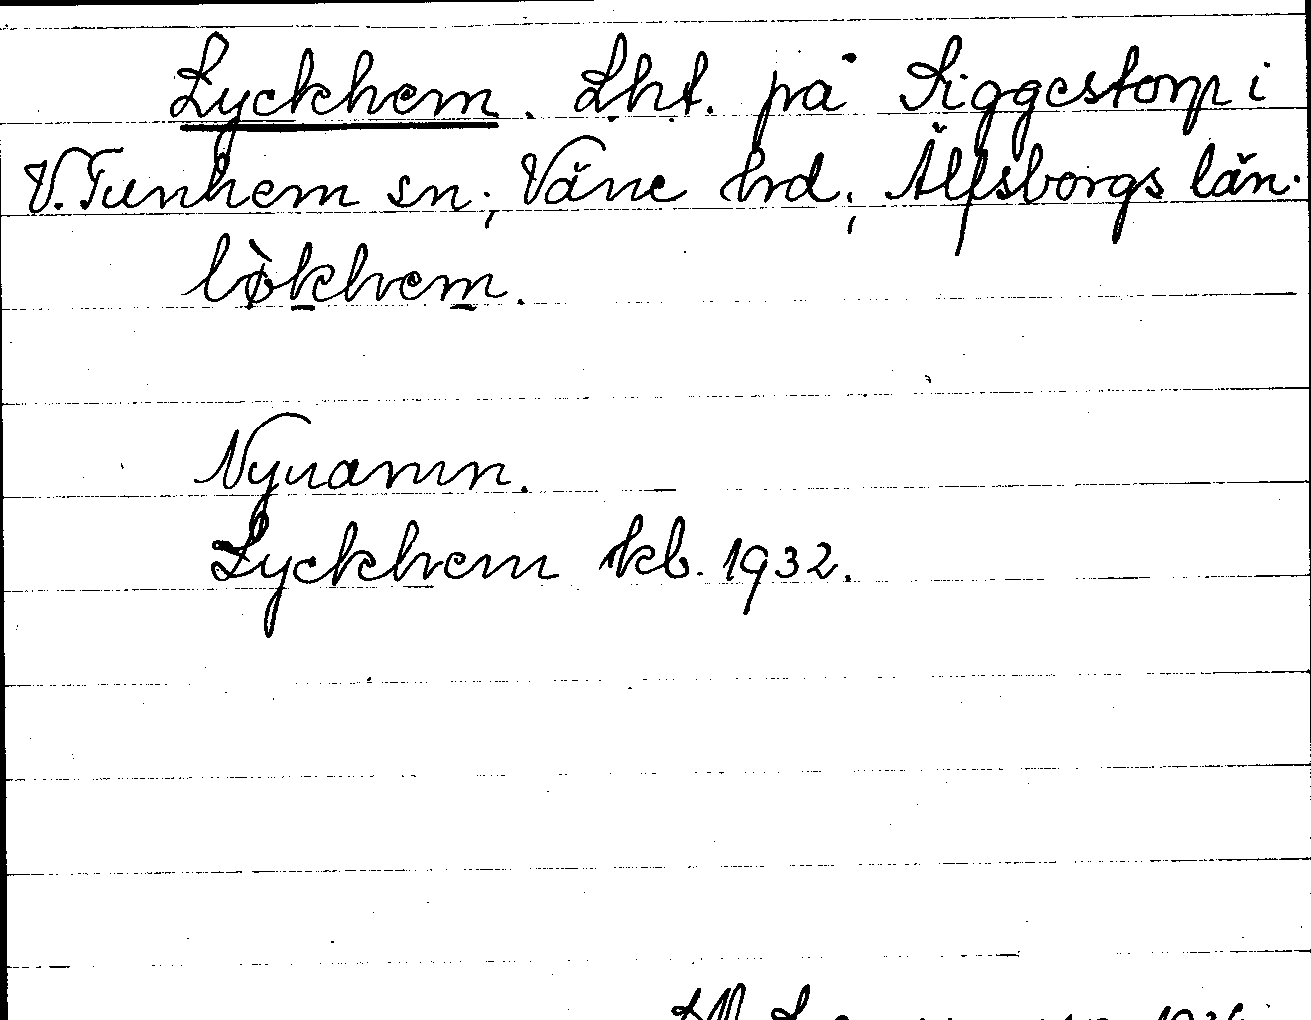 Lyckhem. Lht. på Siggestorp i
V. Tunhem sn; Väne hrd; Älfsborgs län.
lø̀khem.
Nynamn.
Lyckhem kb. 1932.